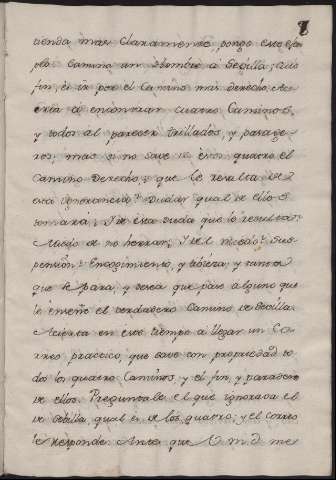 8
tienda mas claramente, pongo este exem
plo. Camina un Hombre a Sevilla; cuio
fin, es ir por el Camino mas derecho. Ac
ierta a encontrar cuatro Caminos,
y todos al parecer trillados, y pasage
ros; mas si no save de esos quatro el
camino derecho; que le resulta de
esa ignorancia? Dudar qual de ellos
tomará; Y de esta duda que le resulta?
Miedo de no herrar; Y del miedo? Sus
pension? Encogimiento, y tibieza, y tanta
que se para; y desea que pase alguno que
le enseñe el verdadero Camino de Sevilla.
Acierta en este tiempo a llegar un Co
rreo practico, que save con propiedad to
dos los quatro Caminos, y el fin, y paradero
de ellos. Preguntale el que ignorava el
de Sevilla qual es de los quatro; y el correo
le responde. Antes que V. md. me